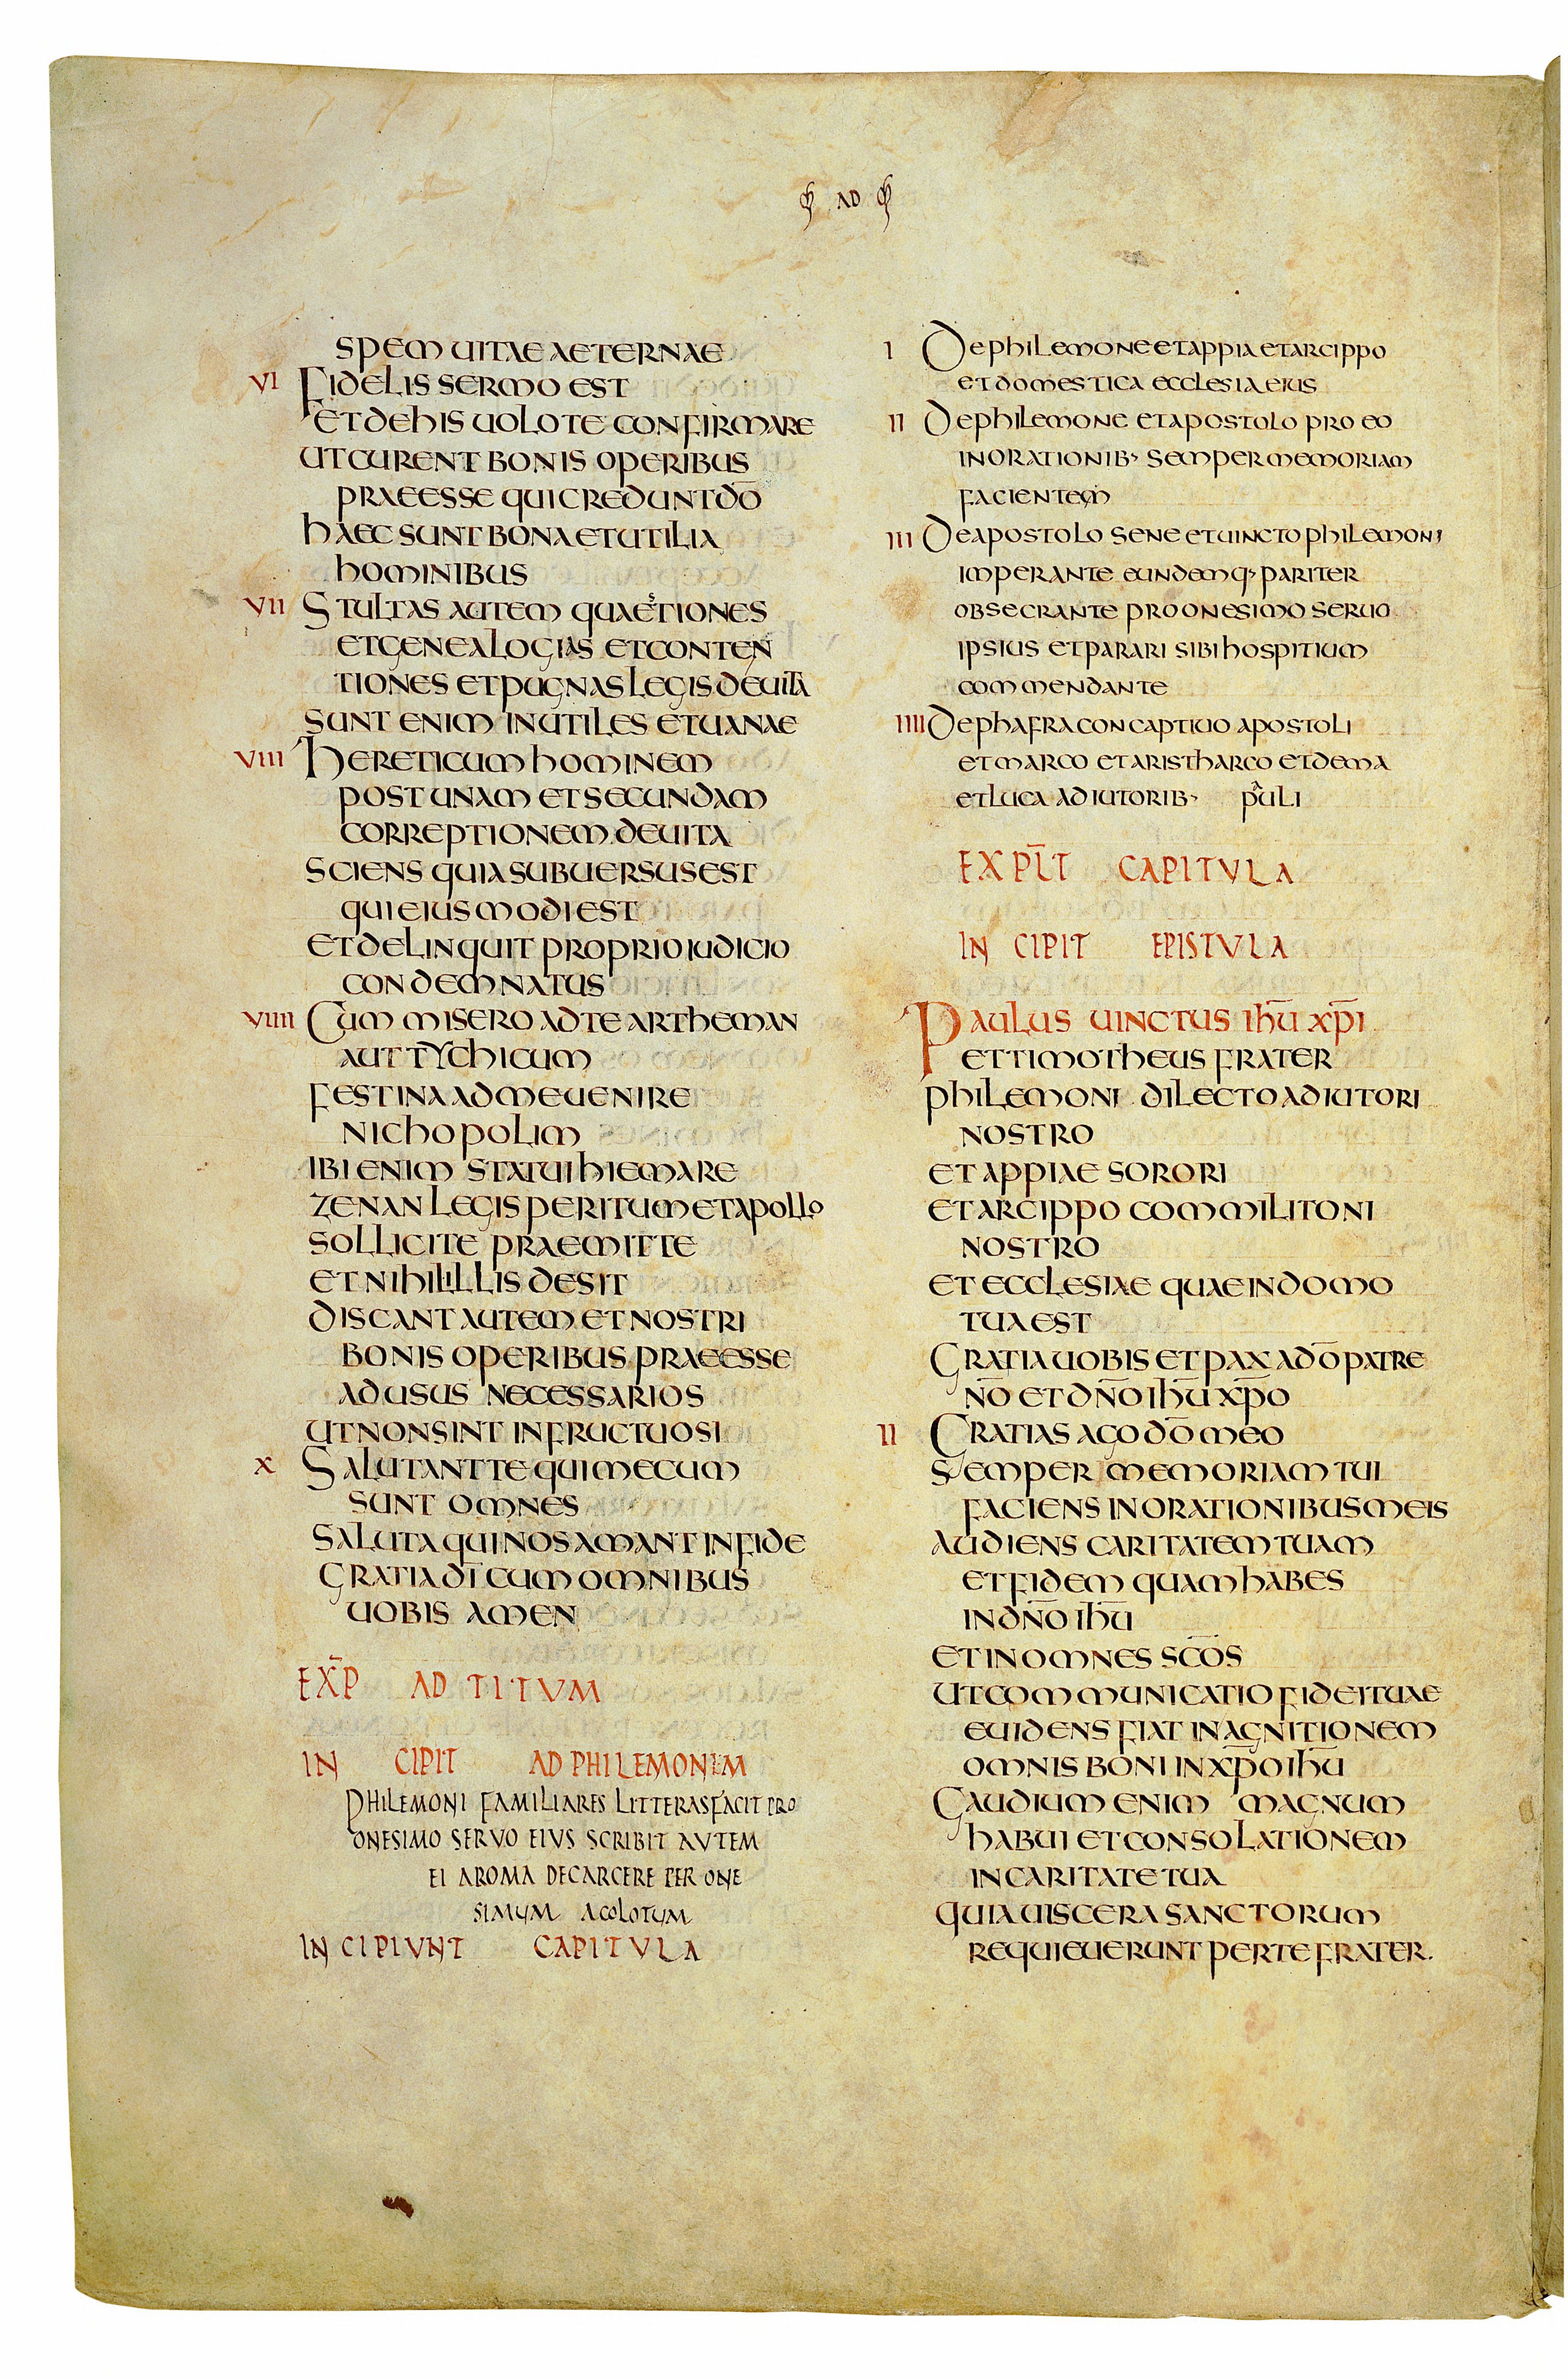 AD
SPEM UITAE AETERNAE
VI FIDELIS SERMO EST
ET DE HIS UOLO TE CONFIRMARE
UT CURENT BONIS OPERIBUS
PRAEESSE QUI CREDUNT DO̅
HAEC SUNT BONA ET UTILIA
HOMINIBUS
VII STULTAS AUTEM QUAESTIONES
ET GENEALOGIAS ET CONTEN
TIONES ET PUGNAS LEGIS DEUITA
SUNT ENIM INUTILES ET UANAE
VIII HERETICUM HOMINEM
POST UNAM ET SECUNDAM
CORREPTIONEM DEUITA
SCIENS QUIA SUBUERSUS EST
QUI EIUSMODI EST
ET DELINQUIT PROPRIO IUDICIO
CONDEMNATUS
VIIII CUM MISERO AD TE ARTHEMAN
AUT TYCHICUM
FESTINA AD ME UENIRE
NICHOPOLIM
IBI ENIM STATUI HIEMARE
ZENAN LEGIS PERITUM ET APOLLO
SOLLICITE PRAEMITTE
ET NIHIL ILLIS DESIT
DISCANT AUTEM ET NOSTRI
BONIS OPERIBUS PRAEESSE
AD USUS NECESSARIOS
UT NON SINT INFRUCTUOSI
X SALUTANT TE QUI MECUM
SUNT OMNES
SALUTA QUI NOS AMANT IN FIDE
GRATIA DI̅ CUM OMNIBUS
UOBIS AMEN
EXP̅ AD TITVM
IN CIPIT AD PHILEMONEM
PHILEMONI FAMILIARES LITTERAS FACIT PRO
ONESIMO SERVO EIVS SCRIBIT AVTEM
EI A ROMA DE CARCERE PER ONE
SIMUM ACOLOTUM
IN CIPIVNT CAPITVLA
I DE PHILEMONE ET APPIA ET ARCIPPO
ET DOMESTICA ECCLESIA EIUS
II DE PHILEMONE ET APOSTOLO PRO EO
IN ORATIONIB' SEMPER MEMORIAM
FACIENTEM
III DE APOSTOLO SENE ET UINCTO PHILEMONI
IMPERANTE EUNDEMQ' PARITER
OBSECRANTE PRO ONESIMO SERUO
IPSIUS ET PARARI SIBI HOSPITIUM
COMMENDANTE
IIII DE PHAFRA CONCAPTIUO APOSTOLI
ET MARCO ET ARISTHARCO ET DEMA
ET LUCA ADIUTORIB' PAULI
EXPLI̅T CAPITVLA
IN CIPIT EPISTVLA
PAULUS UINCTUS IHU̅ XPI̅
ET TIMOTHEUS FRATER
PHILEMONI DILECTO ADIUTORI
NOSTRO
ET APPIAE SORORI
ET ARCIPPO COMMILITONI
NOSTRO
ET ECCLESIAE QUAE IN DOMO
TUA EST
GRATIA UOBIS ET PAX A DO̅ PATRE
NO̅ ET DN̅O IHU̅ XP̅O
II GRATIAS AGO DO̅ MEO
SEMPER MEMORIAM TUI
FACIENS IN ORATIONIBUS MEIS
AUDIENS CARITATEM TUAM
ET FIDEM QUAM HABES
IN DN̅O IHU̅
ET IN OMNES SCO̅S
UT COMMUNICATIO FIDEI TUAE
EUIDENS FIAT IN AGNITIONEM
OMNIS BONI IN XP̅O IHU̅
GAUDIUM ENIM MAGNUM
HABUI ET CONSOLATIONEM
IN CARITATE TUA
QUIA UISCERA SANCTORUM
REQUIEUERUNT PER TE FRATER.